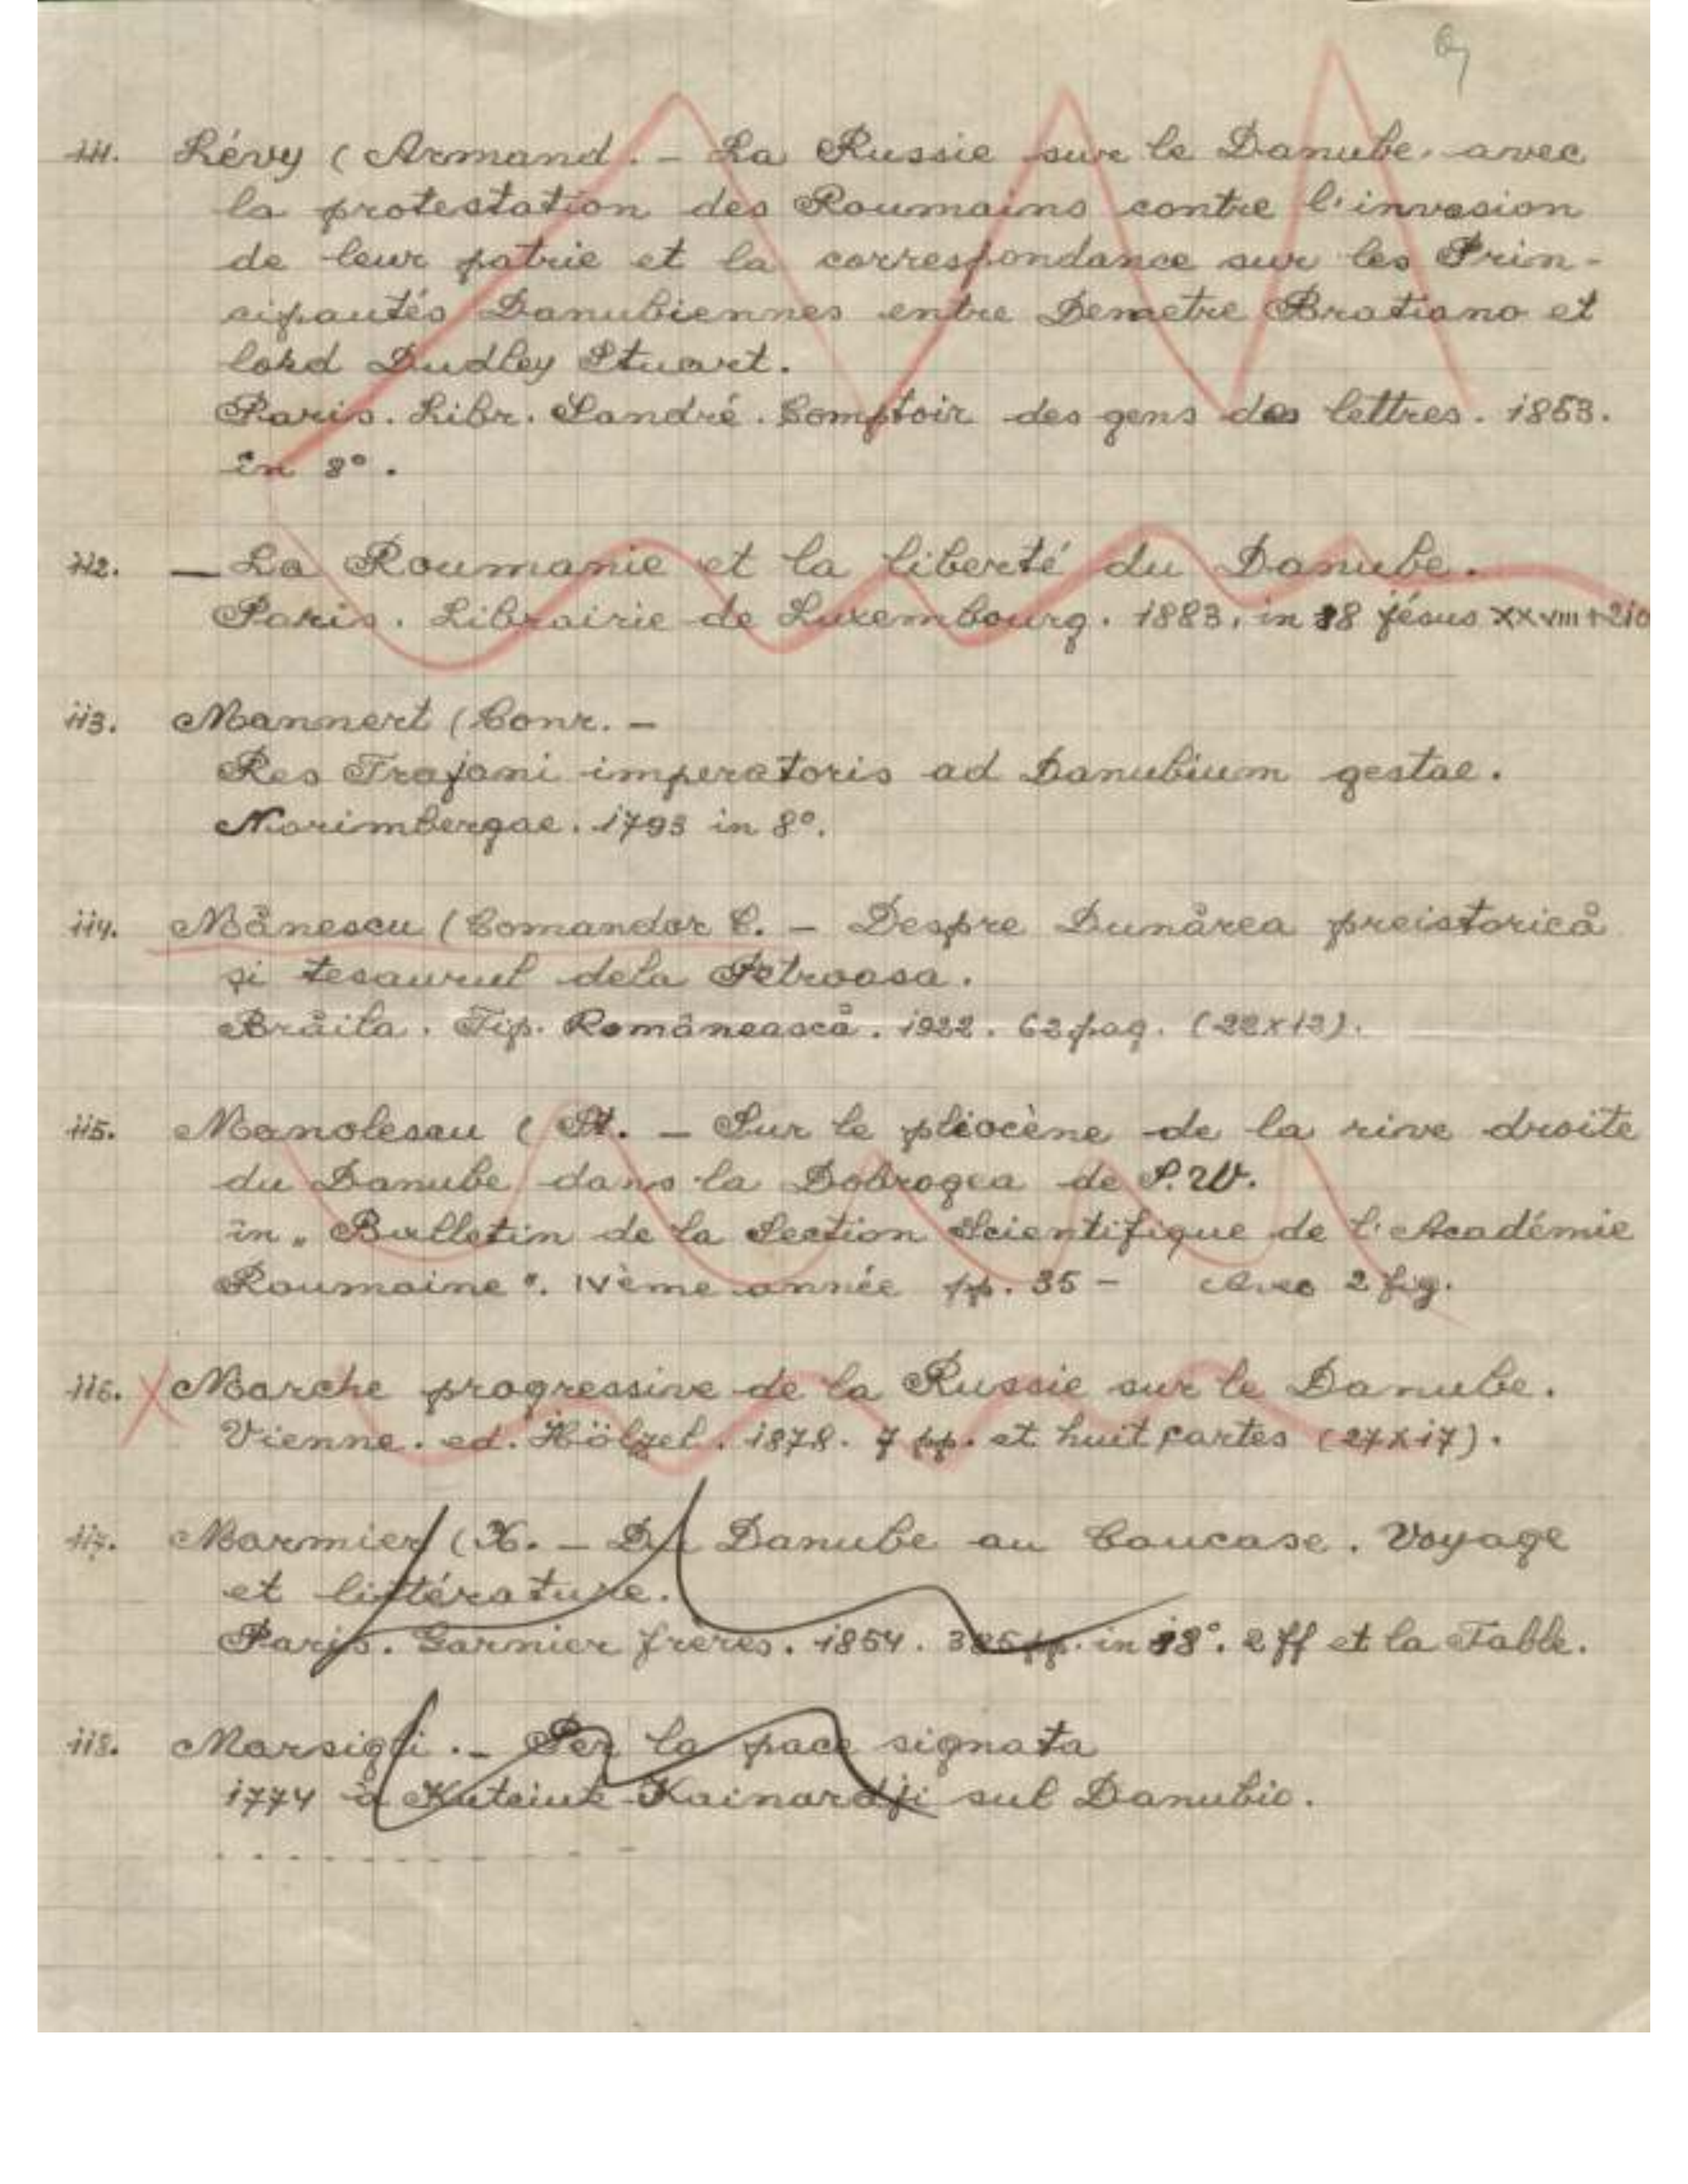 111. Lévy (Armand. – La Russie sur le Danube, avec
la protestation des Roumains contre l'invasion
de leur patrie et la correspondance sur les Prin-
cipautés Danubiennes entre Demetre Bratiano et
lord Dudley Stuart.
Paris. Libr. Sandré. Comptoir des gens des lettres. 1853.
in 8°.
112. — La Roumanie et la liberté du Danube.
Paris. Librairie de Luxembourg. 1883. in 18 jésus XXVIII+210
113. Mannert (Conr. –
Res Trajani imperatoris ad Danubium gestae.
Norimbergae. 1793 in 8°.
114. Mănescu (Comandor C. – Despre Dunărea preistorică
și tesaurul dela Petroasa.
Brăila. Tip. Românească. 1922. 62 pag. (22x12).
115. Manolescu (St. – Sur le pliocène de la rive droite
du Danube dans la Dobrogea de S.W.
in „Bulletin de la Section Scientifique de l'Académie
Roumaine". IVème année pp. 35 – Avec 2 fig.
116. Marche progressive de la Russie sur le Danube.
Vienne. ed. Hölzel. 1878. 7 pp. et huit cartes (27x17).
117. Marmier (X. – Du Danube au Caucase. Voyage
et littérature.
Paris. Garnier frères. 1854. pp. in 18°. 2 ff et la Table.
118. Marsigli. – Per la pace signata
1774 à Kutciuk-Kainardji sul Danubio.